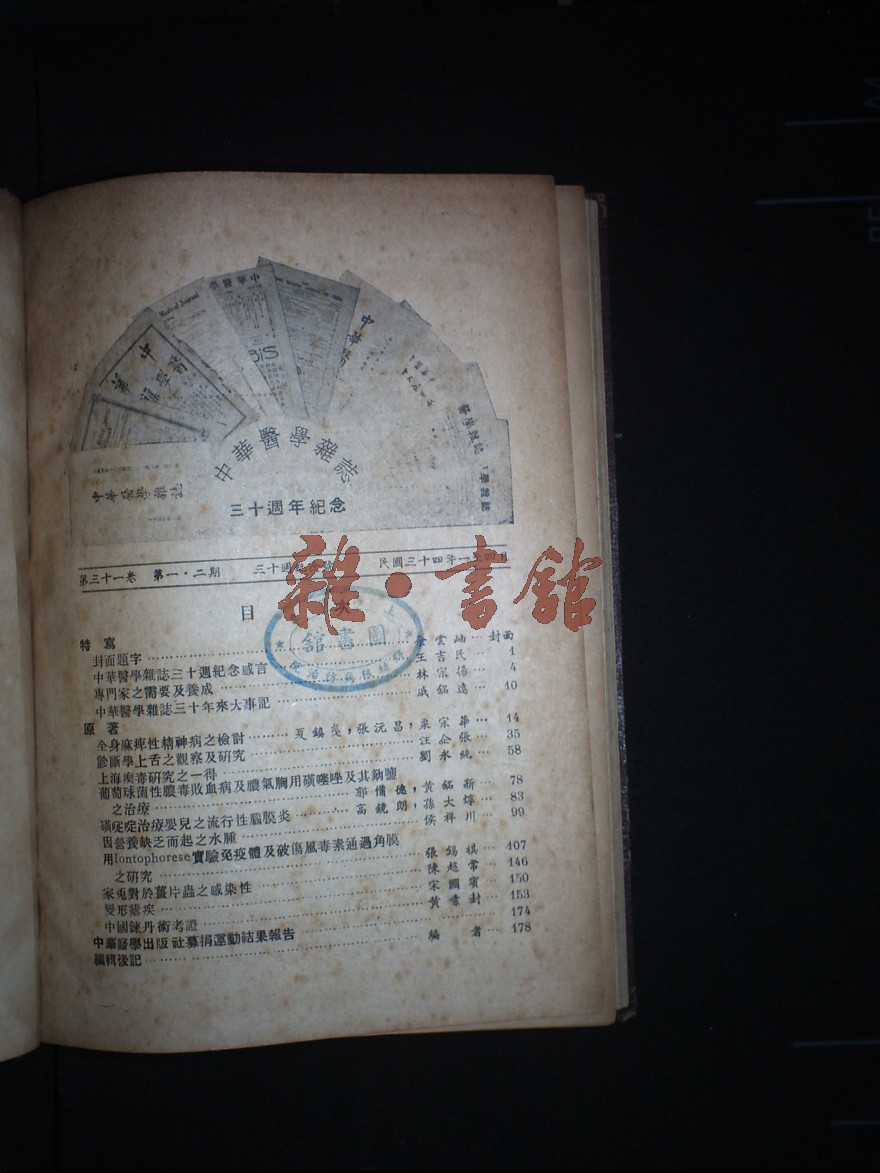 中華醫學
Medical Journal
中華醫學雜
中華醫
醫學雜誌
學雜誌
中華醫學雜誌
中華醫學雜誌
三十週年紀念
第三十一卷 第一·二期 三十週 民國三十四年一至四月
雜·書館
目 次
圖書館
特 寫
封面題字 余雲岫 封面
中華醫學雜誌三十週紀念感言 王吉民 1
專門家之需要及養成 林宗揚 4
中華醫學雜誌三十年來大事記 戚銘遠 10
原 著
全身麻痺性精神病之檢討 夏鎮夷,張沅昌,粟宗華 14
診斷學上舌之觀察及研究 汪企張 35
上海痰毒研究之一得 劉永純 58
葡萄球菌性膿毒敗血病及膿氣胸用磺噻唑及其鈉鹽
之治療 郭備德,黃銘新 78
磺啶治療嬰兒之流行性腦膜炎 高鏡朗,孫大 83
因營養缺乏而起之水腫 侯祥川 99
用Iontophorese實驗免疫體及破傷風毒素通過角膜
之研究 張錫祺 407
家兎對於薑片蟲之感染性 陳超常 146
變形瘧疾 宋國賓 150
中國鍊丹術考證 黃素封 153
中華醫學出版社募捐運動結果報告 174
編輯後記 編 者 178